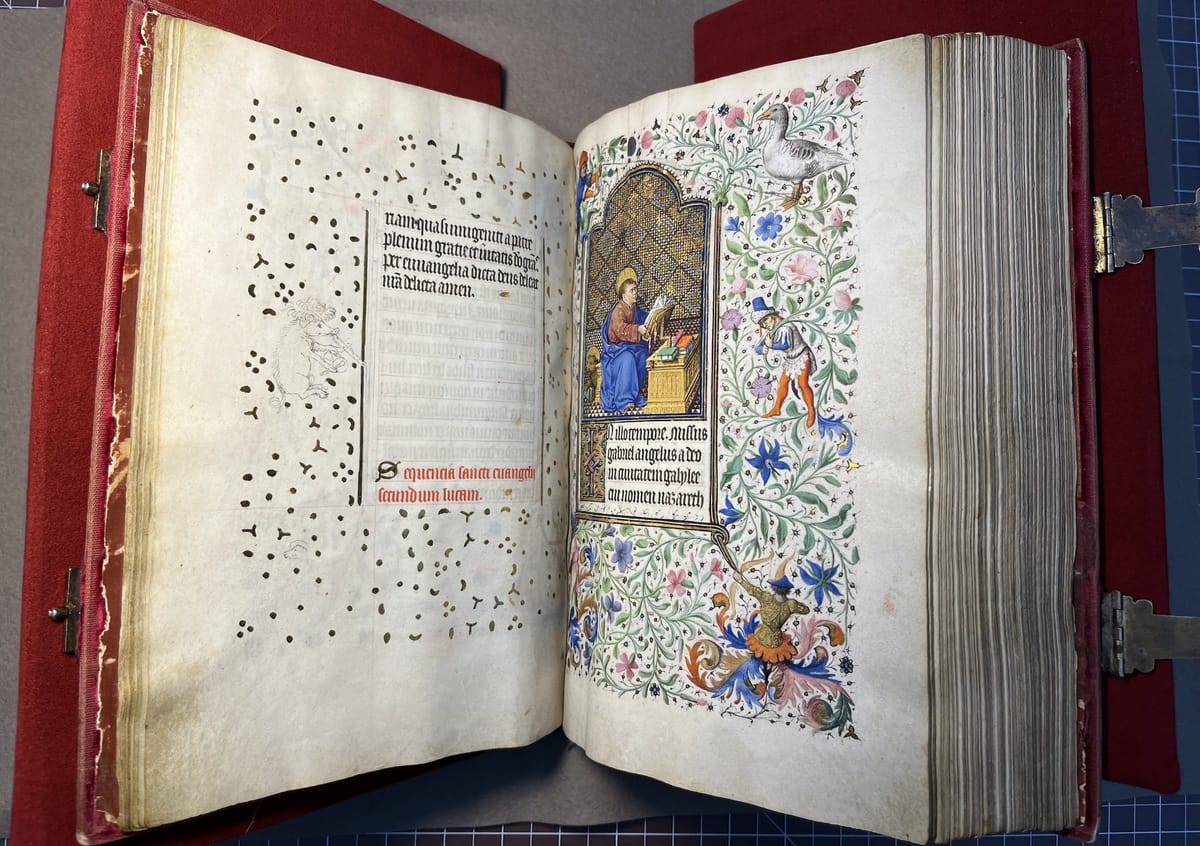 riam quasi unigeniti a patre
plenum gratie et veritatis do gra.
Per euuangelia dicta deus deleat
nra delicta amen.
Sequentia sancti euangelii
secundum lucam.
IN illo tempore. Missus
gabriel angelus a deo
in ciuitatem galylee
cui nomen nazareth